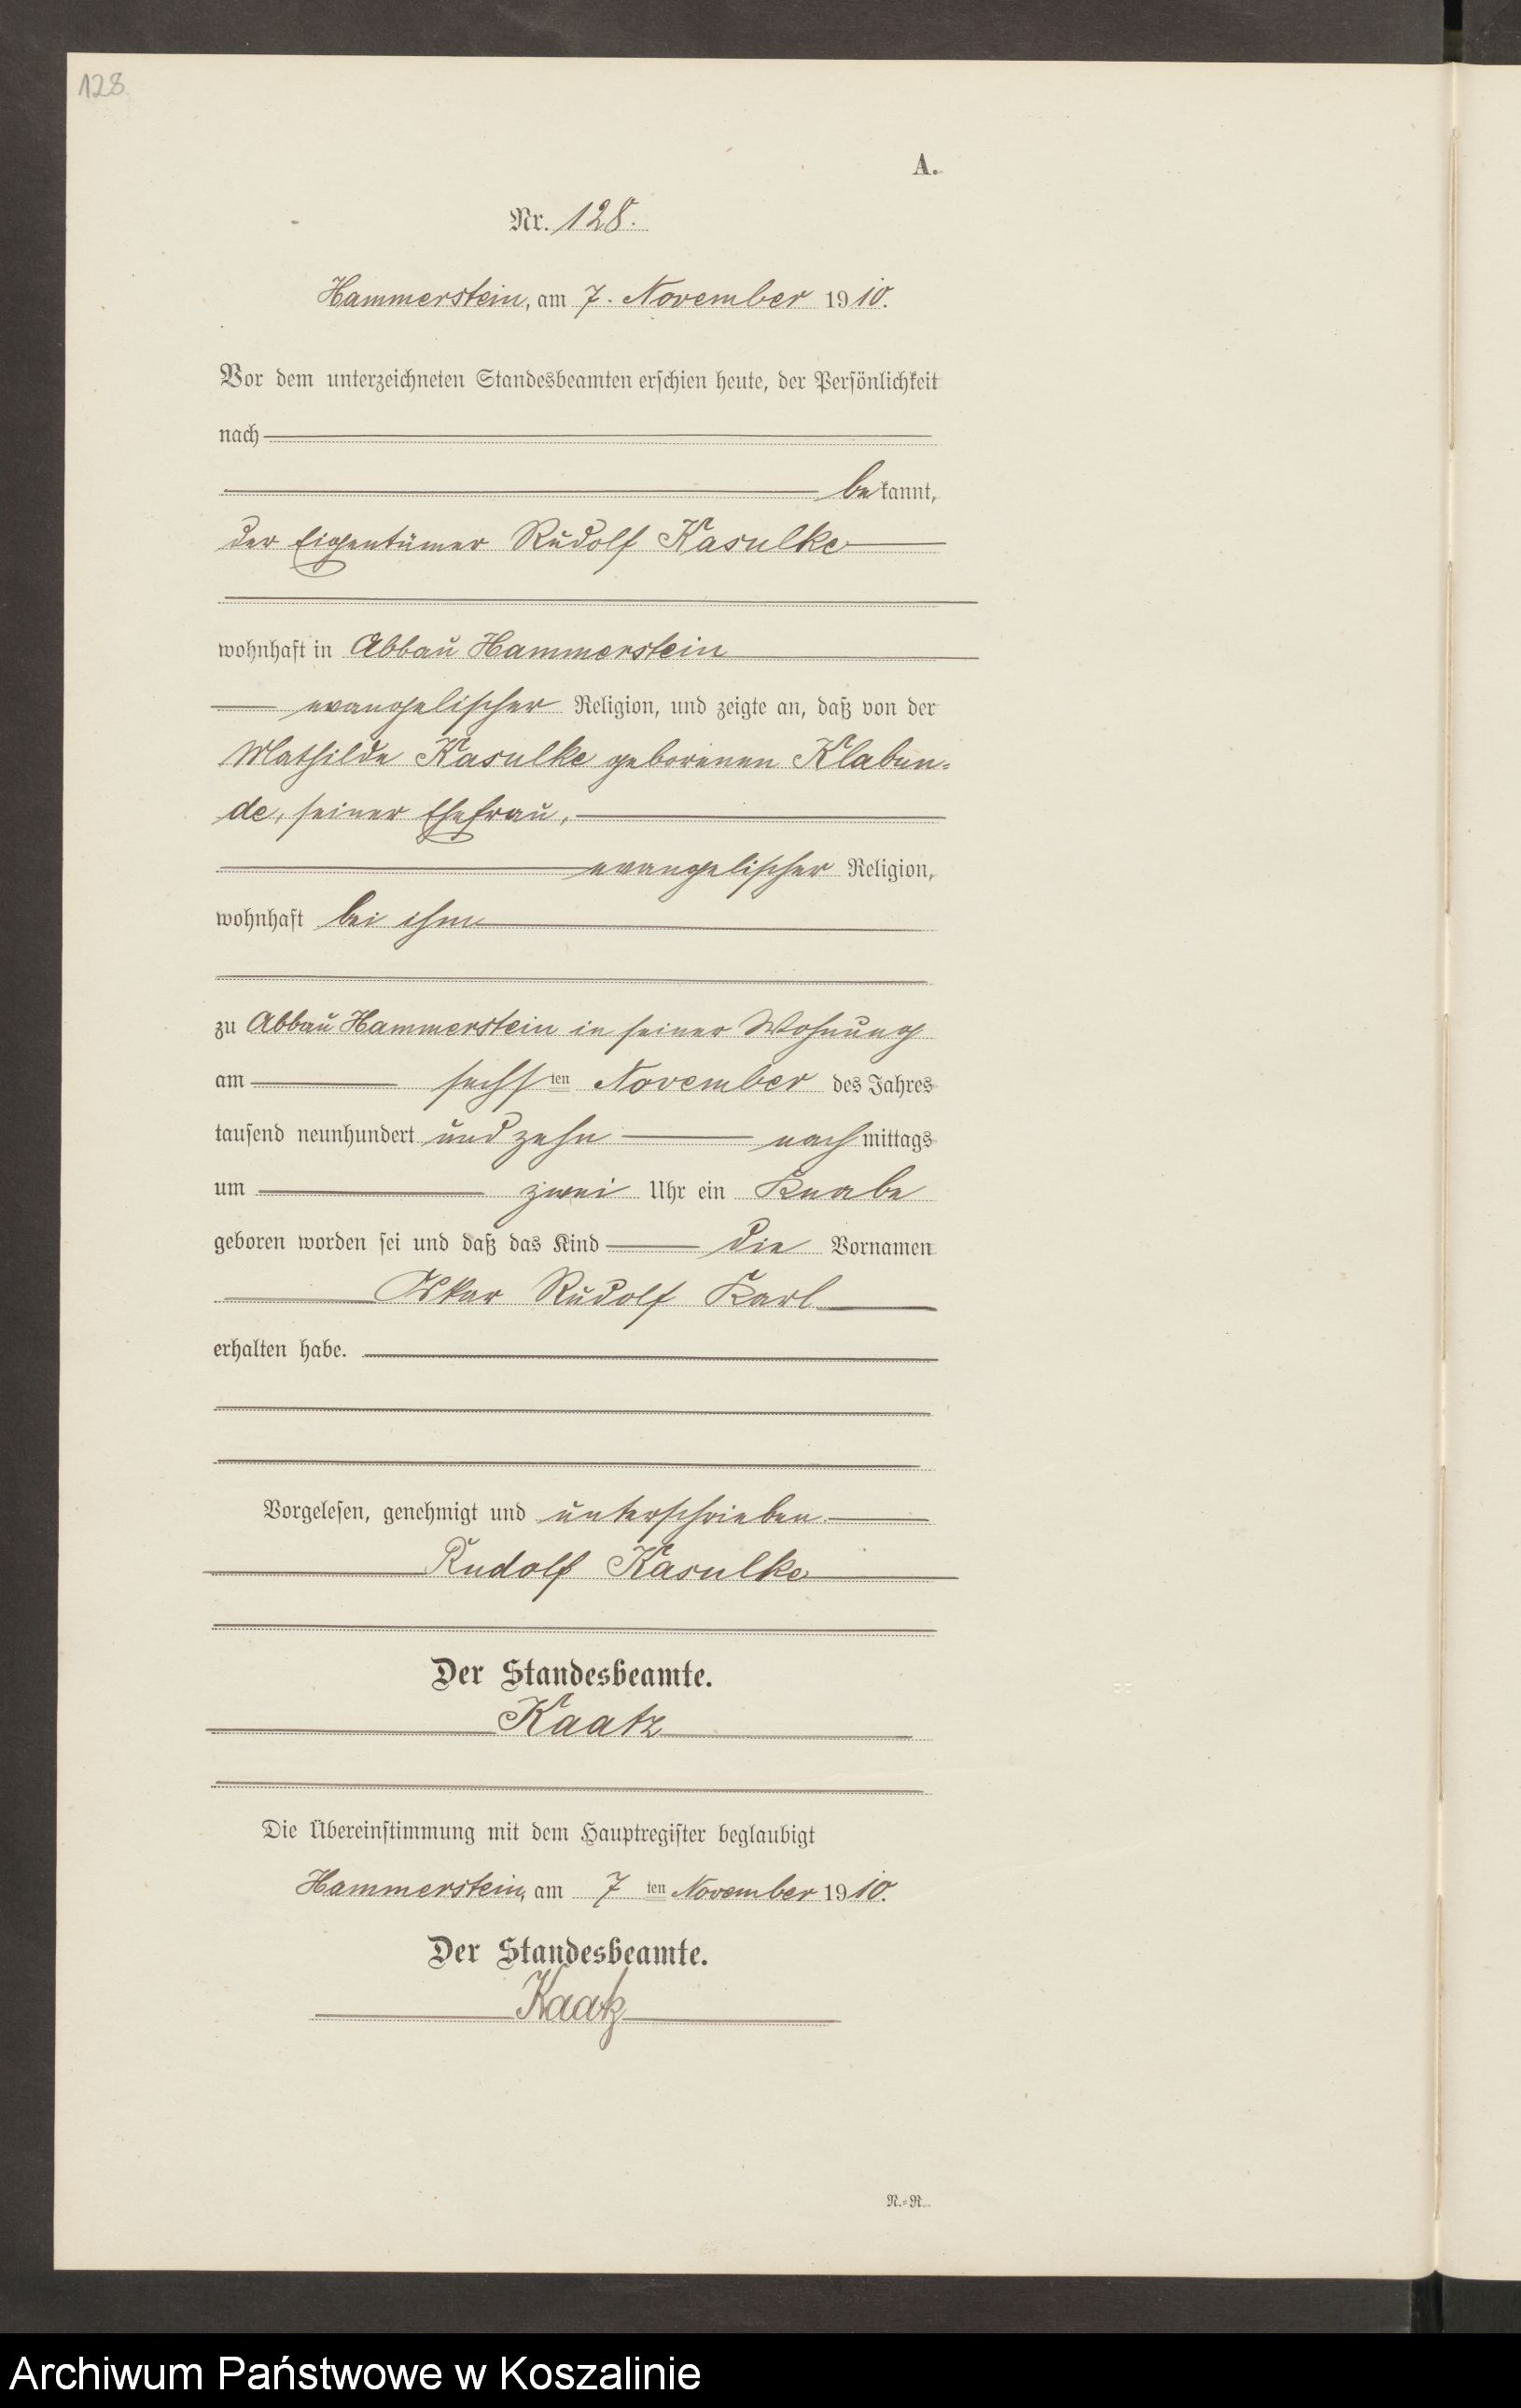 128.
A.
Nr. 128.
Hammerstein, am 7. November 1910.
Vor dem unterzeichneten Standesbeamten erschien heute, der Persönlichkeit
nach
bekannt,
der Eigentümer Rudolf Kasulke
wohnhaft in Abbau Hammerstein
evangelischer Religion, und zeigte an, daß von der
Mathilde Kasulke geborenen Klabun-
de, seiner Ehefrau,
evangelischer Religion,
wohnhaft bei ihm
zu Abbau Hammerstein in seiner Wohnung
am sechsten November des Jahres
tausend neunhundert und zehn nachmittags
um zwei Uhr ein Knabe
geboren worden sei und daß das Kind die Vornamen
Oskar Rudolf Karl
erhalten habe.
Vorgelesen, genehmigt und unterschrieben.
Rudolf Kasulke
Der Standesbeamte.
Kaatz
Die Übereinstimmung mit dem Hauptregister beglaubigt
Hammerstein, am 7ten November 1910.
Der Standesbeamte.
Kaatz
N.-R.
Archiwum Państwowe w Koszalinie